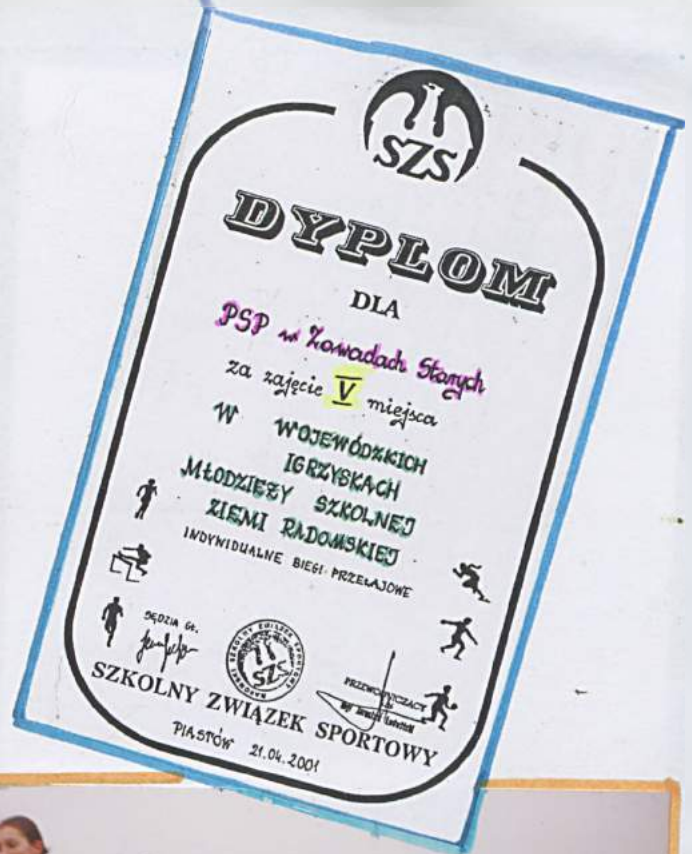 SZS
DYPLOM
DLA
PSP w Zawadach Starych
za zajęcie V miejsca
W WOJEWÓDZKICH
IGRZYSKACH
MŁODZIEŻY SZKOLNEJ
ZIEMI RADOMSKIEJ
INDYWIDUALNE BIEGI PRZEŁAJOWE
SĘDZIA GŁ.
SZS
PRZEWODNICZĄCY
SZKOLNY ZWIĄZEK SPORTOWY
PIASTÓW 21.04.2001